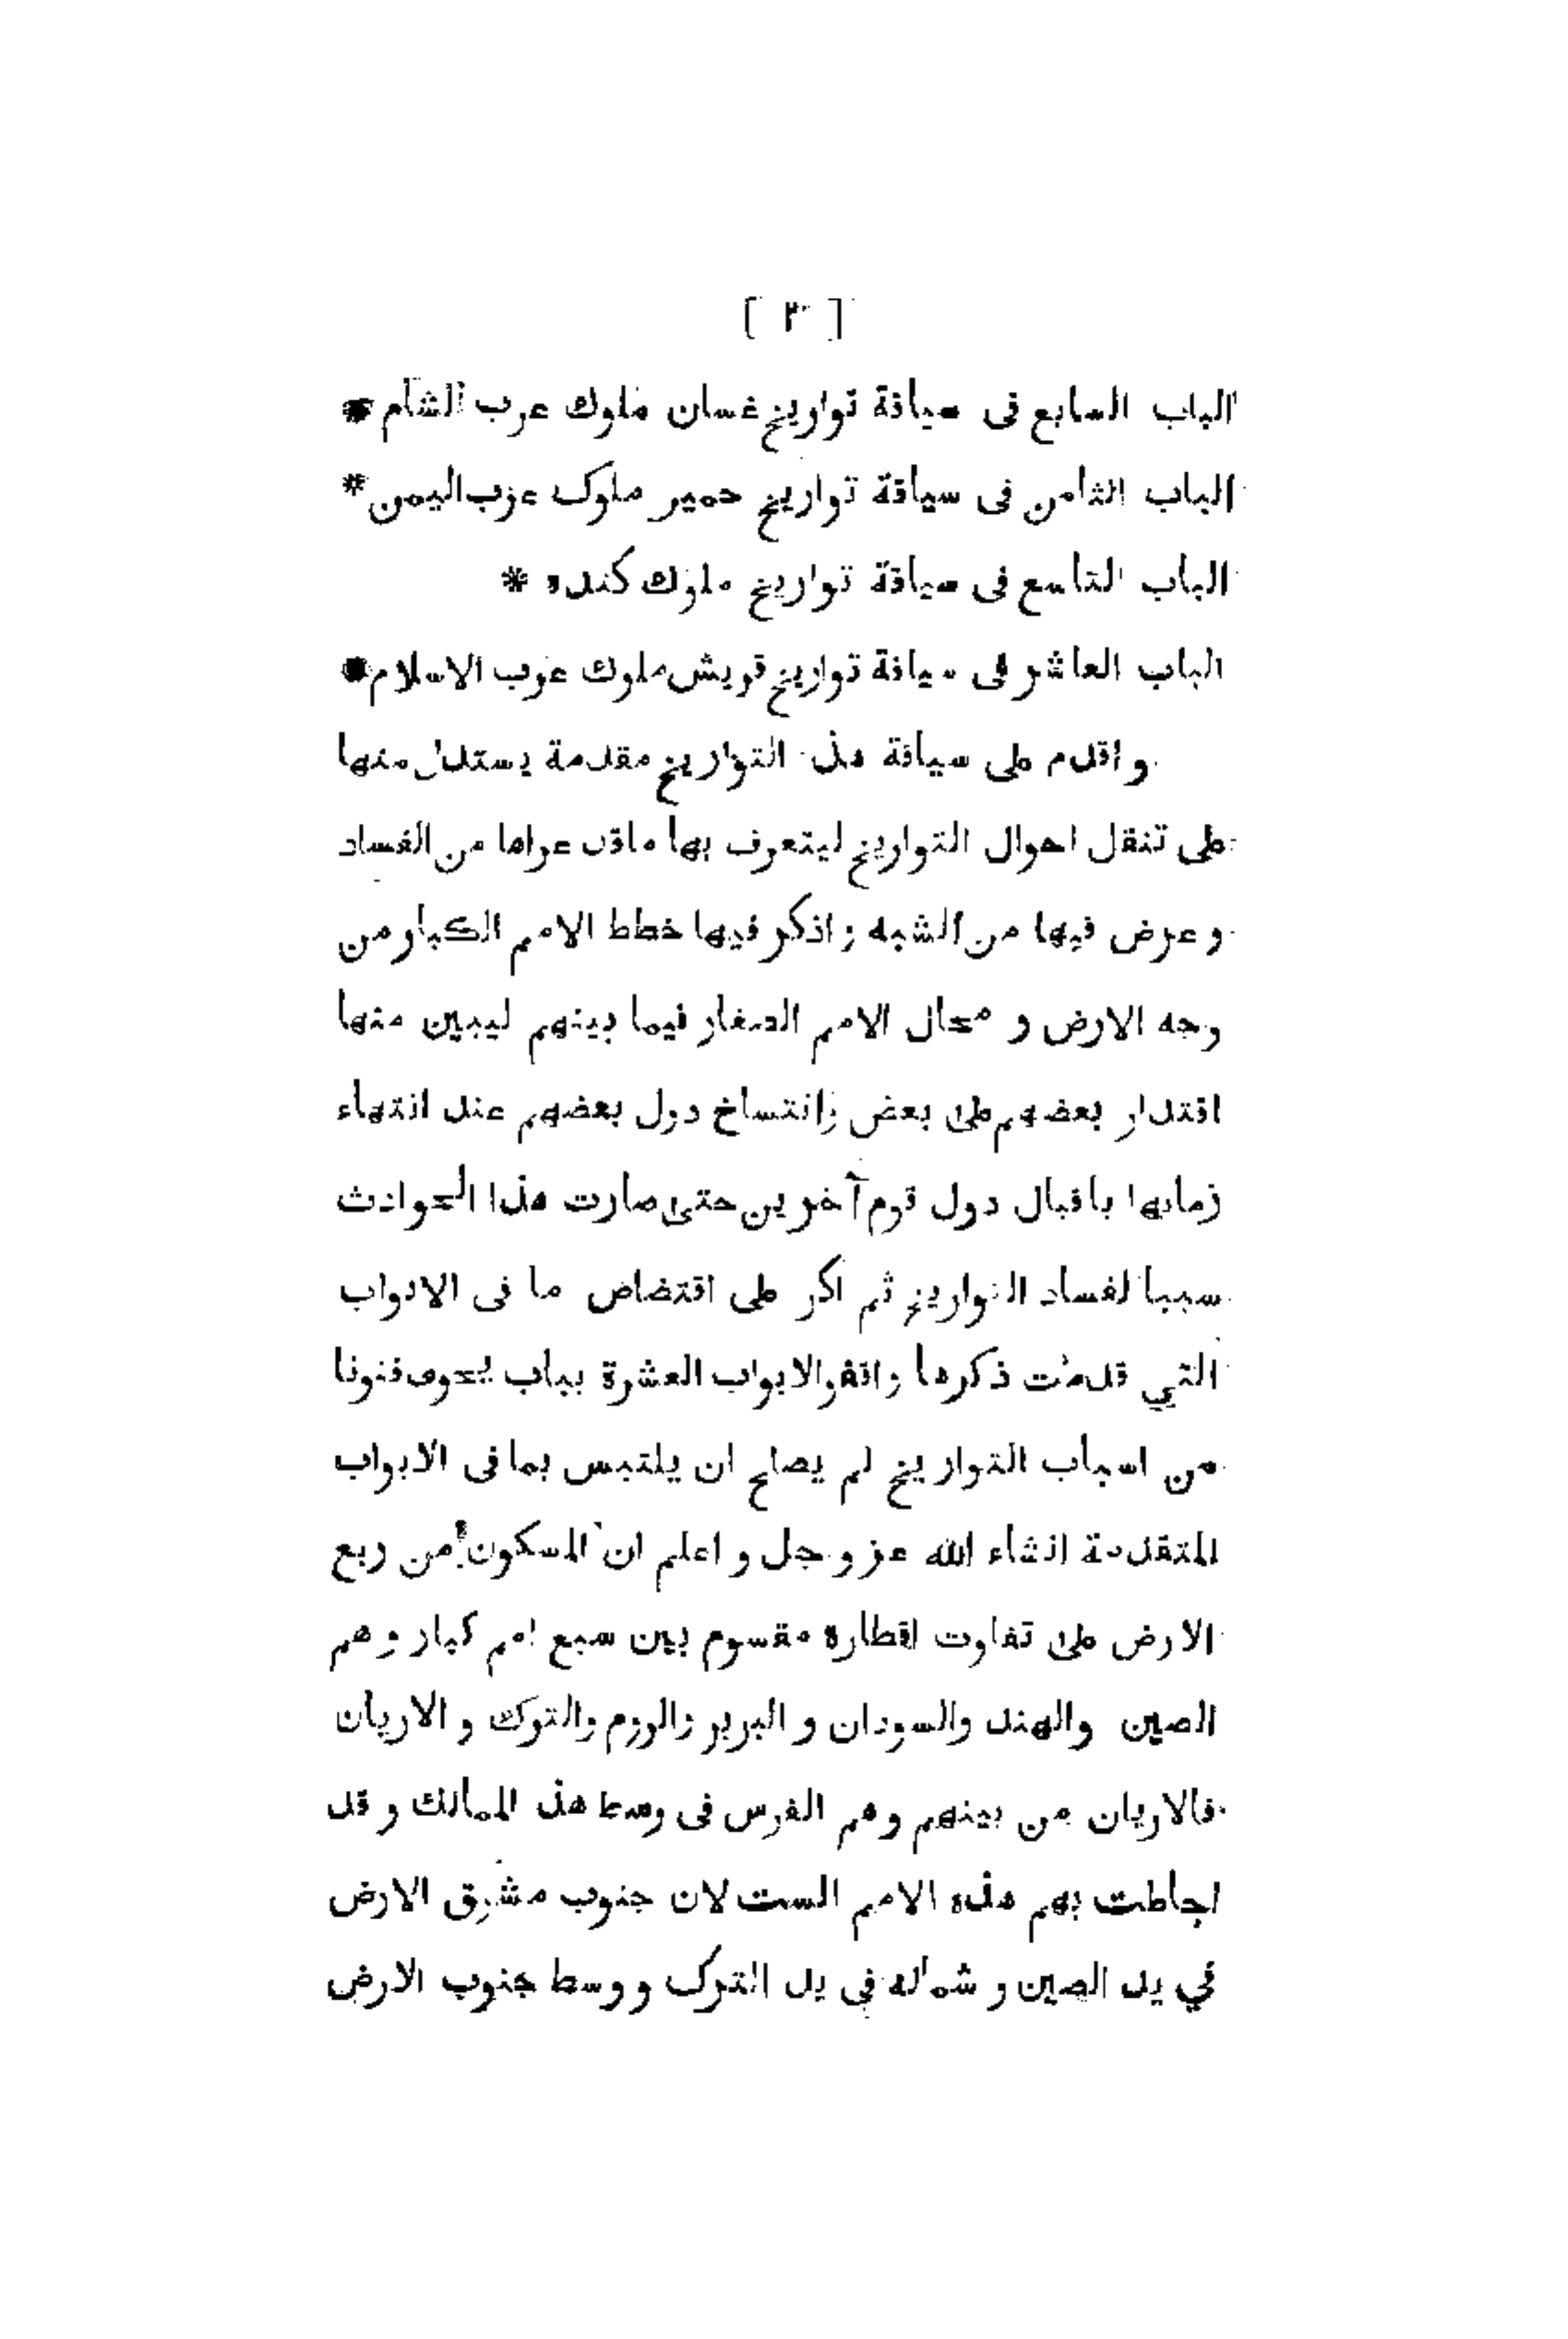 [ ٣ ]
الباب السابع فى سياقة تواريخ غسان ملوك عرب الشام *
الباب الثامن فى سياقة تواريخ حمير ملوك عرب اليمن *
الباب التاسع فى سياقة تواريخ ملوك كنده *
الباب العاشر فى سياقة تواريخ قريش ملوك عرب الاسلام *
و اقدم على سياقة هذه التواريخ مقدمة يستدل منها
على تنقل احوال التواريخ ليتعرف بها ما قد عراها من الفساد
و عرض فيها من الشبه و اذكر فيها خطط الامم الكبار من
وجه الارض و محال الامم الصغار فيما بينهم ليبين منها
اقتدار بعضهم على بعض وانتساخ دول بعضهم عند انتهاء
زمانها باقبال دول قوم آخرين حتى صارت هذا الحوادث
سببا لفساد التواريخ ثم اكر على اقتضاض ما فى الابواب
التي قدمت ذكرها واقفو الابواب العشرة بباب يحوى فنونا
من اسباب التواريخ لم يصلح ان يلتبس بما فى الابواب
المتقدمة انشاء الله عز و جل و اعلم ان المسكون من ربع
الارض على تفاوت اقطاره مقسوم بين سبع امم كبار و هم
الصين والهند والسودان و البربر والروم والترك و الاريان
فالاريان من بينهم وهم الفرس فى وسط هذ الممالك و قد
احاطت بهم هذه الامم الست لان جنوب مشرق الارض
في يد الصين و شماله فى يد الترك و وسط جنوب الارض